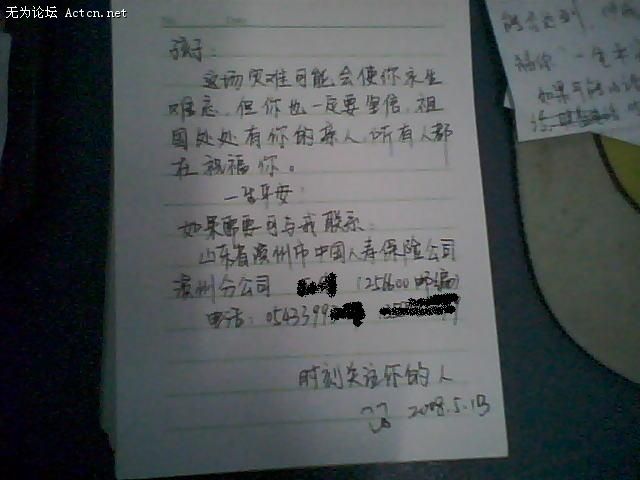 无为论坛 Actcn.net
No.
Date
孩子:
这场灾难可能会使你永生
难忘,但你也一定要坚信,祖
国处处有你的亲人,所有人都
在祝福你。
一生平安
如果需要可与我联系:
山东省滨州市中国人寿保险公司
滨州分公司 (256600邮编)
电话:05433993
时刻关注你的人
2008.5.13
福你 一生平
如果